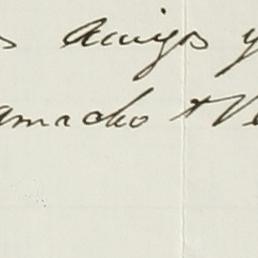 s Amigos y
amacho + Ve